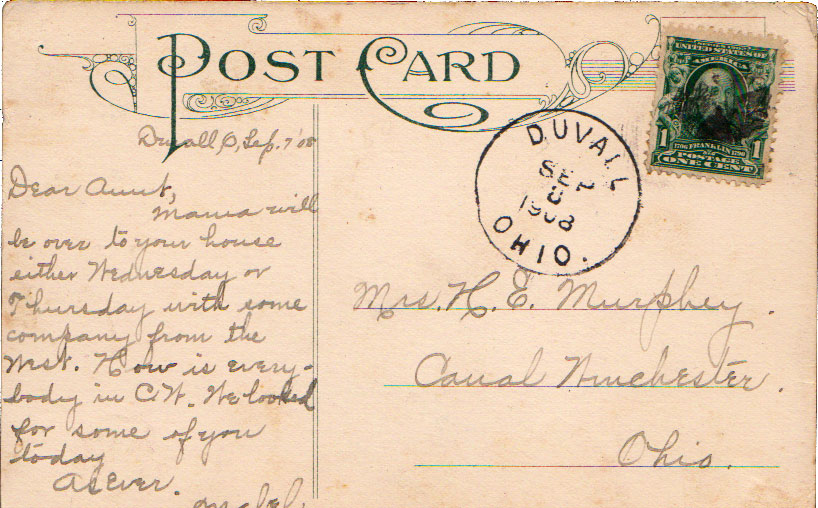 POST CARD
UNITED STATES OF
AMERICA
1 1
1706 FRANKLIN 1790
POSTAGE
ONE CENT
DUVALL
SEP
8
1908
OHIO.
Duvall O, Sep. 7 '08
Dear Aunt,
Mama will
be over to your house
either Wednesday or
Thursday with some
company from the
West. How is every-
body in C.W. We looked
for some of you
today
As Ever.
Mabel.
Mrs. H. E. Murphey.
Canal Winchester.
Ohio.